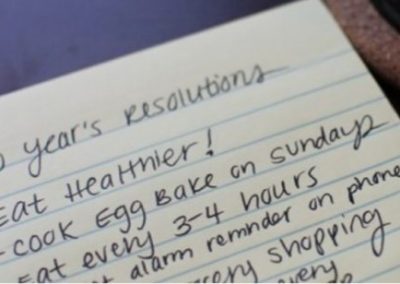 year's resolutions
Eat Healthier!
-cook Egg Bake on sundays
Eat every 3-4 hours
alarm remnder on phone
shopping
every